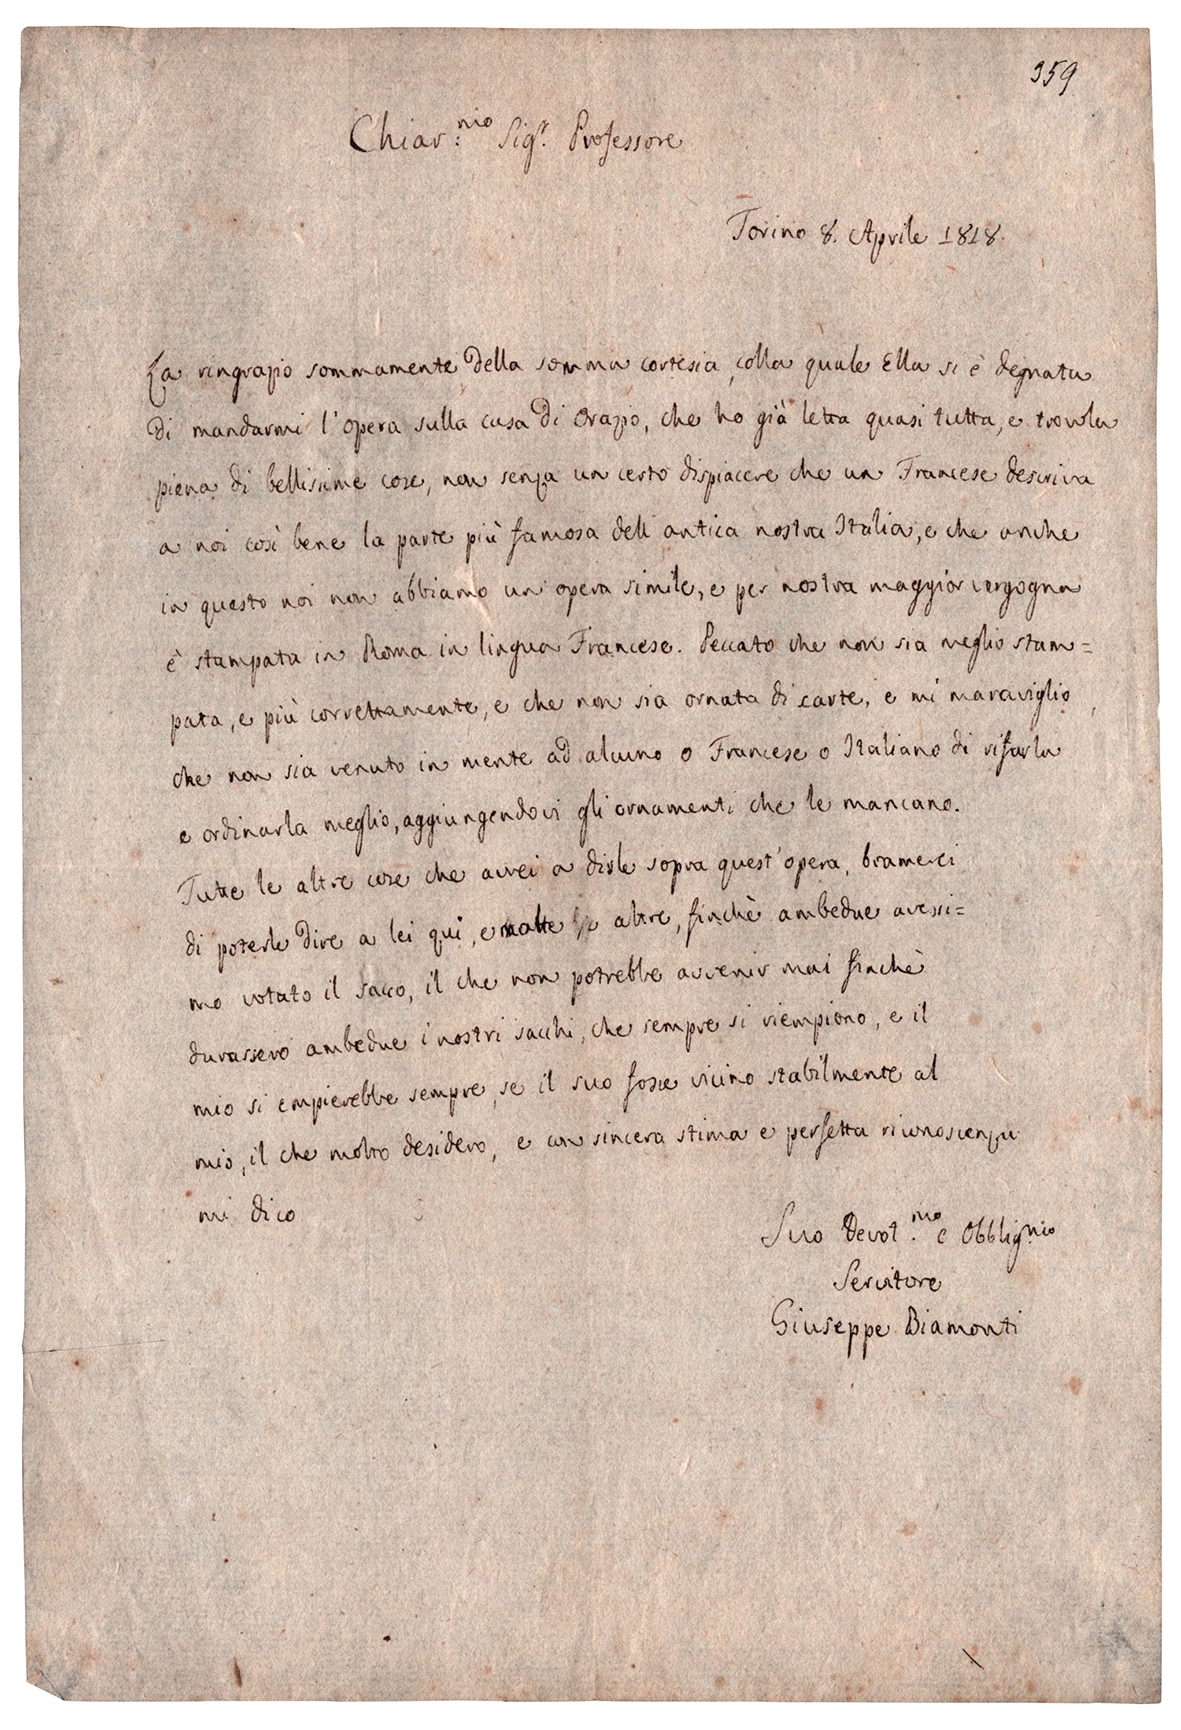 359
Chiar.mo Sigr. Professore
Torino 8. Aprile 1818.
La ringrazio sommamente della somma cortesia, colla quale Ella si è degnata
di mandarmi l'opera sulla casa di Orazio, che ho già letta quasi tutta, e trovola
piena di bellissime cose, non senza un certo dispiacere che un Francese descriva
a noi così bene la parte più famosa dell antica nostra Italia, e che anche
in questo noi non abbiamo un opera simile, e per nostra maggior vergogna
è stampata in Roma in lingua Francese. Peccato che non sia meglio stam=
pata, e più correttamente, e che non sia ornata di carte, e mi maraviglio,
che non sia venuto in mente ad alcuno o Francese o Italiano di rifarla
e ordinarla meglio, aggiungendovi gli ornamenti che le mancano.
Tutte le altre cose che avrei a dirle sopra quest'opera, bramerei
di poterle dire a lei qui, e molte altre, finchè ambedue avessi=
mo votato il sacco, il che non potrebbe avvenir mai finchè
durassero ambedue i nostri sacchi, che sempre si riempiono, e il
mio si empierebbe sempre, se il suo fosse vicino stabilmente al
mio, il che molto desidero, e con sincera stima e perfetta riconoscenza
mi dico
Suo Devot.mo e Obbligmo
Servitore
Giuseppe Biamonti